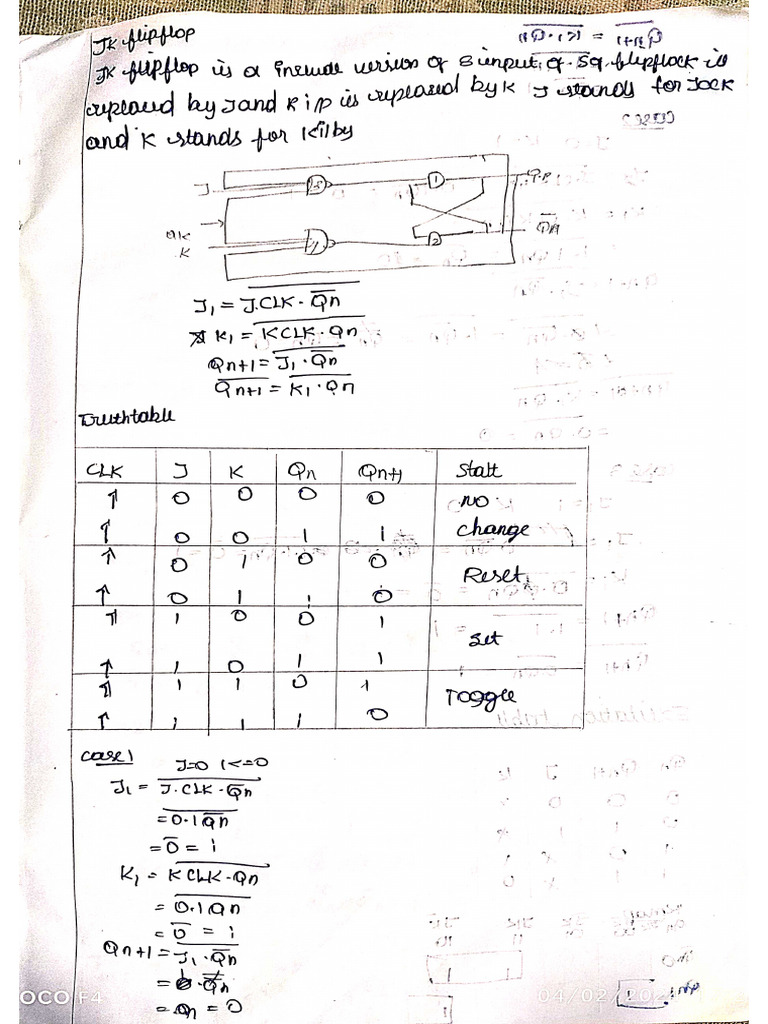 JK flipflop
JK flipflop is a version of S input of SR flipflock is
replaced by J and R i/p is replaced by K J stands for Jack
and K stands for Kilby
J
clk
K
1
2
Q̅n
J₁ = \overline{J.CLK.Q̅n}
K₁ = \overline{KCLK.Qn}
Qn+1 = \overline{J₁.Q̅n}
\overline{Qn+1} = \overline{K₁.Qn}
Truthtable
CLK J K Qn Qn+1 Statt
↑ 0 0 0 0 NO
↑ 0 0 1 1 change
↑ 0 1 0 0 Reset
↑ 0 1 1 0
↑ 1 0 0 1 Set
↑ 1 0 1 1
↑ 1 1 0 1 Toggle
↑ 1 1 1 0
case 1 J=0 K=0
J₁ = \overline{J.CLK.Q̅n}
= \overline{0.1Q̅n}
= 0̅ = 1
K₁ = \overline{KCLK.Qn}
= \overline{0.1Qn}
= 0̅ = 1
Qn+1 = \overline{J₁.Q̅n}
= Q̅n
= Qn = 0
OCO F4
04/02/20